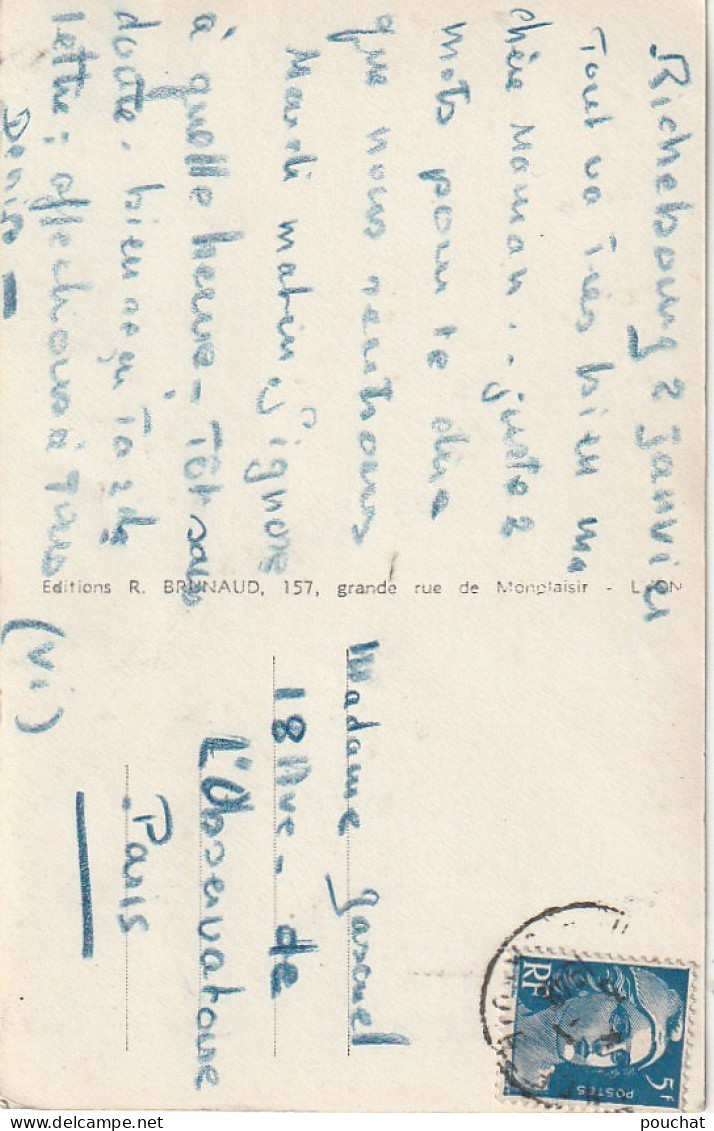 Richebourg 2 Janvier
Tout va Très bien ma
chère Maman.. juste 2
mots pour te dire
que nous rentrons
Mardi matin, J'ignore
à quelle heure - Tôt sans
doute. bien reçu Ta
lettre; affections à Tous
Denise -
Editions R. BRUNAUD, 157, grande rue de Monplaisir - LYON
Madame
18 Ave - de
L'Observatoire
Paris
(VI)
RF
POSTES
5F
pouchat